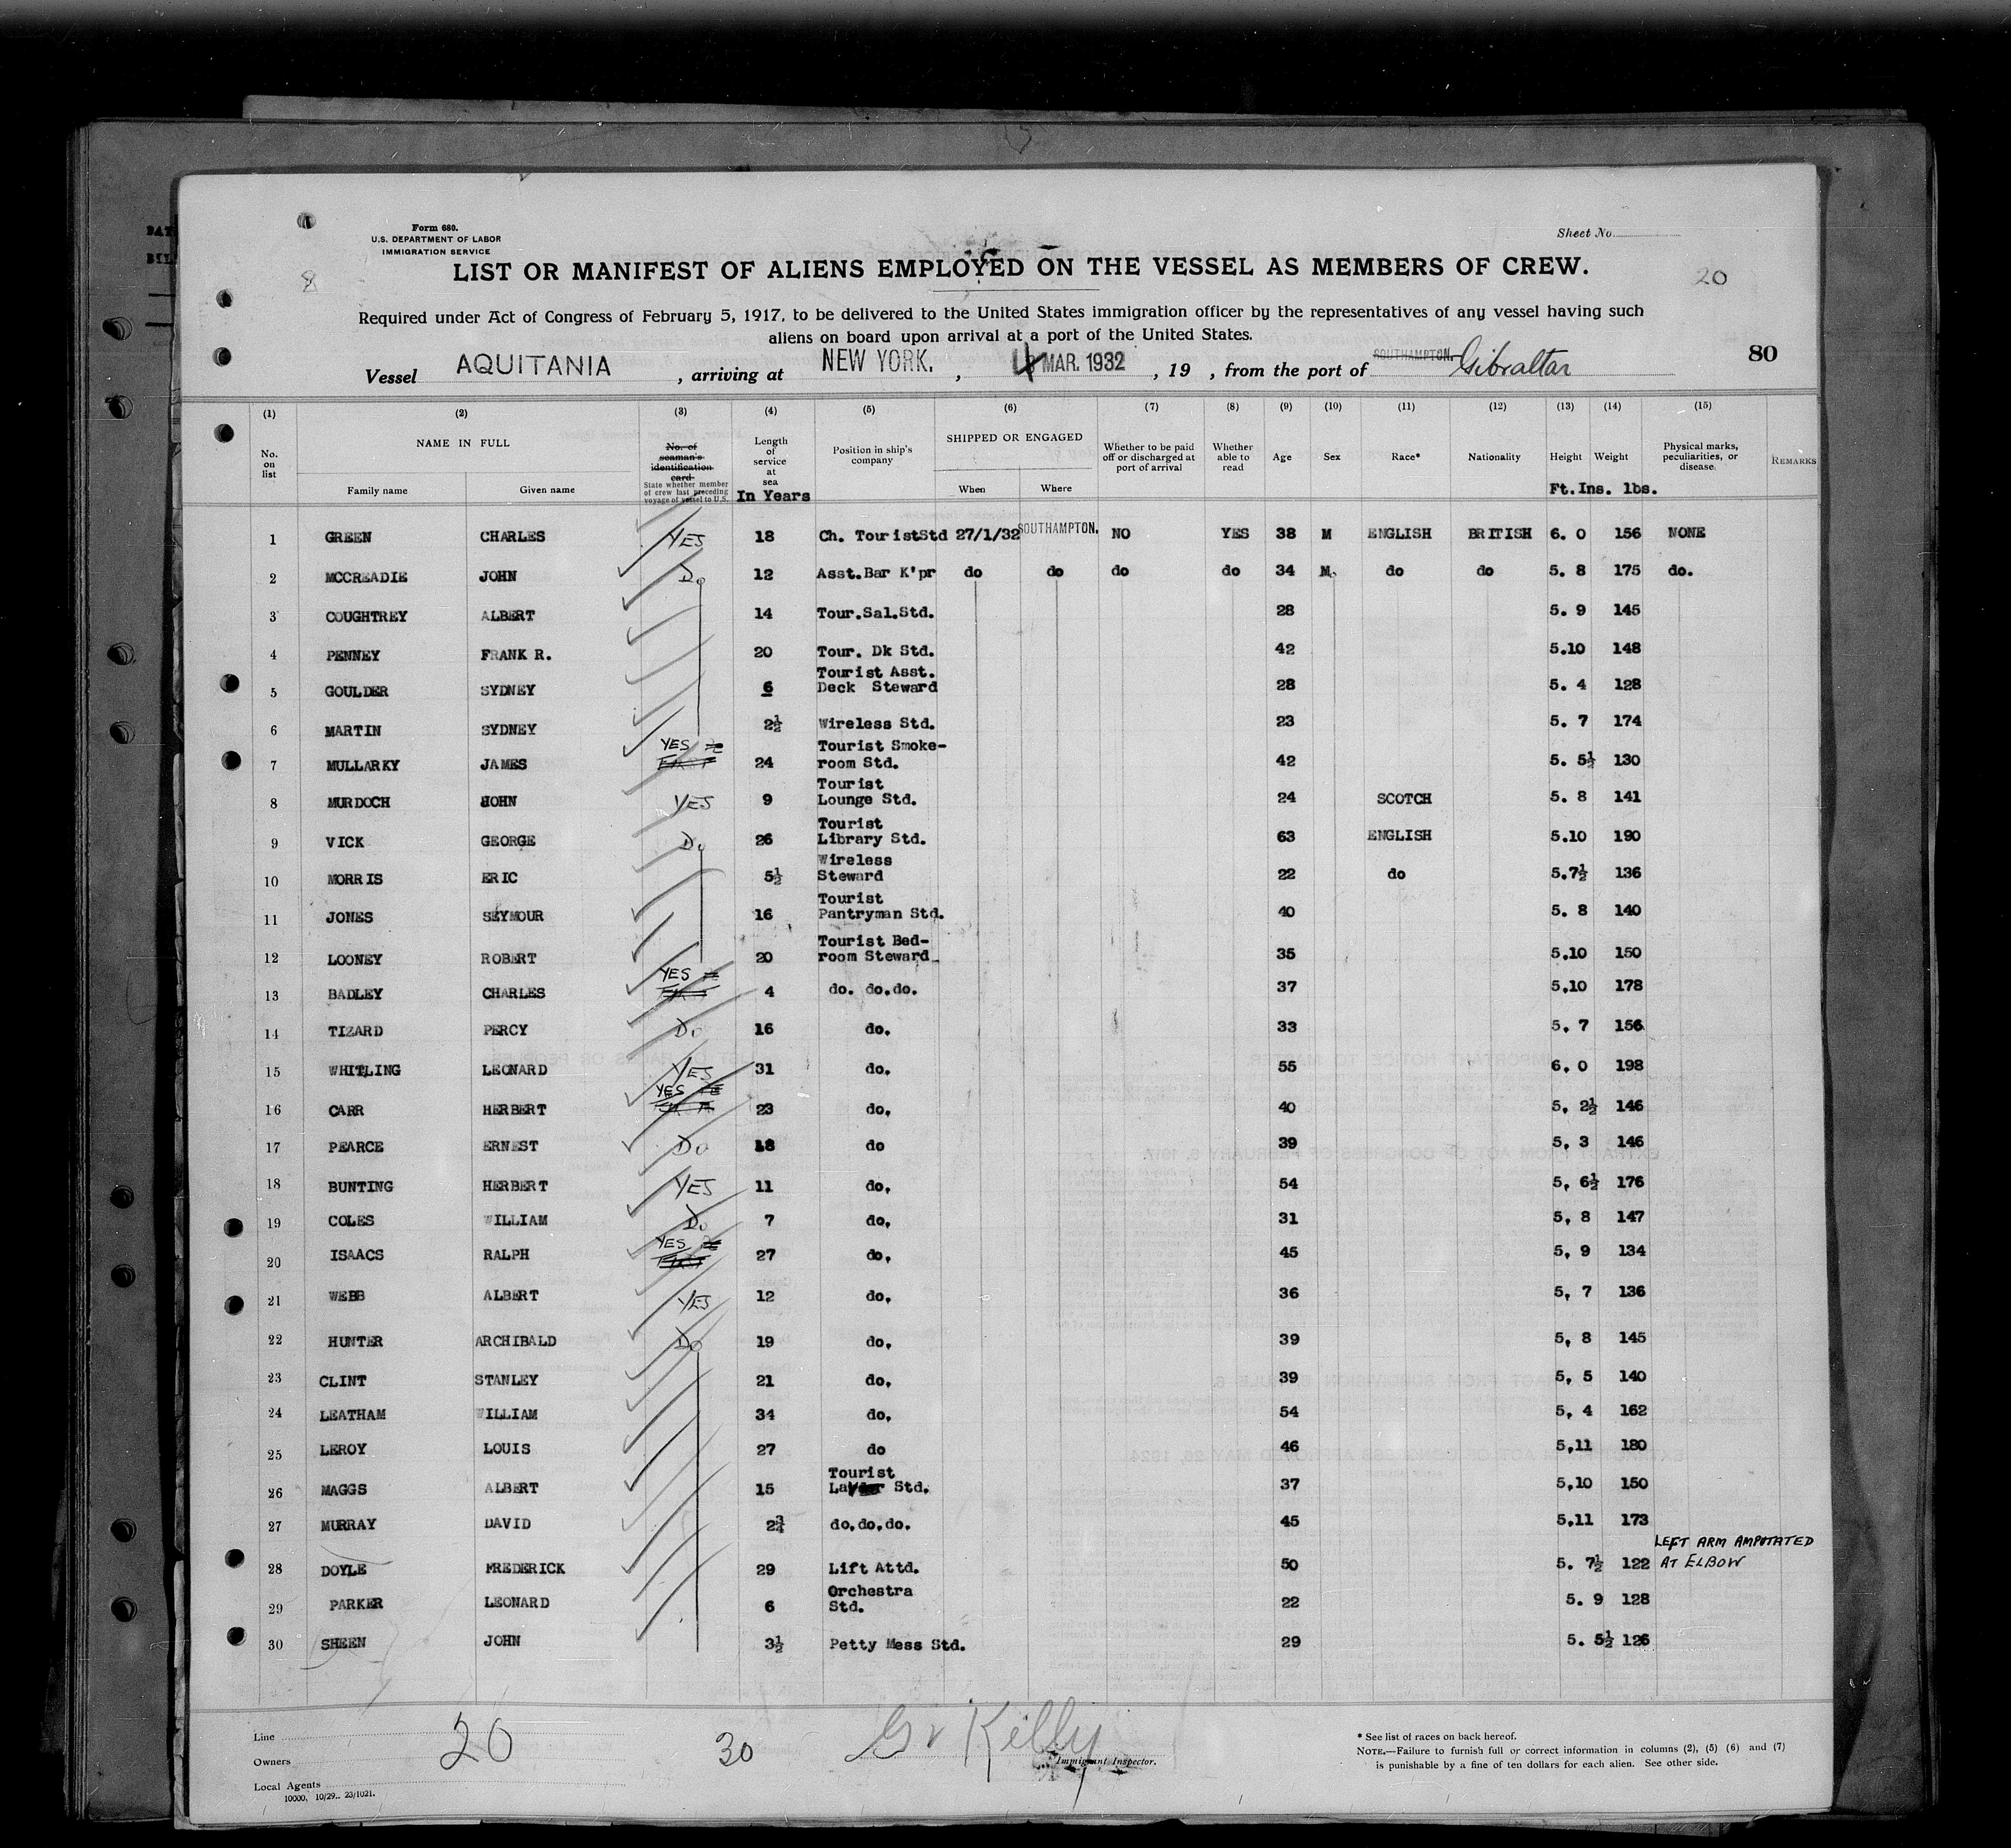 Form 680.
U.S. DEPARTMENT OF LABOR
IMMIGRATION SERVICE
Sheet No.
LIST OR MANIFEST OF ALIENS EMPLOYED ON THE VESSEL AS MEMBERS OF CREW.
8
20
Required under Act of Congress of February 5, 1917, to be delivered to the United States immigration officer by the representatives of any vessel having such
aliens on board upon arrival at a port of the United States.
Vessel AQUITANIA , arriving at NEW YORK. , 4 MAR. 1932 , 19 , from the port of SOUTHAMPTON. Gibraltar
80
(1) (2) (3) (4) (5) (6) (7) (8) (9) (10) (11) (12) (13) (14) (15)
No. on list
NAME IN FULL
Family name Given name
No. of seaman's identification card
State whether member of crew last preceding voyage of vessel to U.S.
Length of service at sea
In Years
Position in ship's company
SHIPPED OR ENGAGED
When Where
Whether to be paid off or discharged at port of arrival
Whether able to read
Age Sex Race* Nationality Height Weight
Ft.Ins. lbs.
Physical marks, peculiarities, or disease
REMARKS
1 GREEN CHARLES YES 18 Ch. TouristStd 27/1/32 SOUTHAMPTON. NO YES 38 M ENGLISH BRITISH 6. 0 156 NONE
2 MCCREADIE JOHN Do 12 Asst.Bar K'pr do do do do 34 M. do do 5. 8 175 do.
3 COUGHTREY ALBERT 14 Tour.Sal.Std. 28 5. 9 145
4 PENNEY FRANK R. 20 Tour. Dk Std. 42 5.10 148
5 GOULDER SYDNEY 6 Tourist Asst. Deck Steward 28 5. 4 128
6 MARTIN SYDNEY 2½ Wireless Std. 23 5. 7 174
7 MULLARKY JAMES YES 24 Tourist Smoke-room Std. 42 5. 5½ 130
8 MURDOCH JOHN YES 9 Tourist Lounge Std. 24 SCOTCH 5. 8 141
9 VICK GEORGE Do 26 Tourist Library Std. 63 ENGLISH 5.10 190
10 MORRIS ERIC 5½ Wireless Steward 22 do 5.7½ 136
11 JONES SEYMOUR 16 Tourist Pantryman Std. 40 5. 8 140
12 LOONEY ROBERT 20 Tourist Bed-room Steward 35 5.10 150
13 BADLEY CHARLES YES 4 do. do.do. 37 5.10 178
14 TIZARD PERCY Do 16 do. 33 5. 7 156
15 WHITLING LEONARD YES 31 do. 55 6. 0 198
16 CARR HERBERT YES 23 do. 40 5. 2½ 146
17 PEARCE ERNEST Do 18 do 39 5. 3 146
18 BUNTING HERBERT YES 11 do. 54 5. 6½ 176
19 COLES WILLIAM Do 7 do. 31 5. 8 147
20 ISAACS RALPH YES 27 do. 45 5. 9 134
21 WEBB ALBERT YES 12 do. 36 5. 7 136
22 HUNTER ARCHIBALD Do 19 do. 39 5. 8 145
23 CLINT STANLEY 21 do. 39 5. 5 140
24 LEATHAM WILLIAM 34 do. 54 5. 4 162
25 LEROY LOUIS 27 do 46 5.11 180
26 MAGGS ALBERT 15 Tourist Std. 37 5.10 150
27 MURRAY DAVID 2¾ do.do.do. 45 5.11 173
28 DOYLE FREDERICK 29 Lift Attd. 50 5. 7½ 122 LEFT ARM AMPUTATED AT ELBOW
29 PARKER LEONARD 6 Orchestra Std. 22 5. 9 128
30 SHEEN JOHN 3½ Petty Mess Std. 29 5. 5½ 126
Line
Owners
Local Agents
10000, 10/29.. 23/1021.
20
30
Kelly
Immigrant Inspector.
* See list of races on back hereof.
NOTE.—Failure to furnish full or correct information in columns (2), (5) (6) and (7)
is punishable by a fine of ten dollars for each alien. See other side.